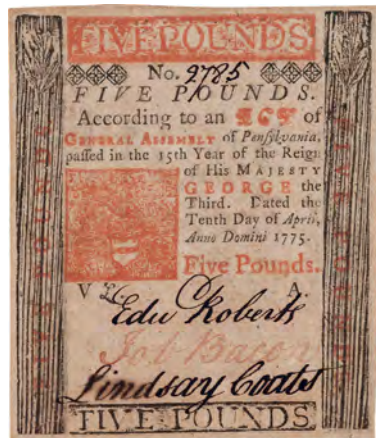 FIVE POUNDS
No. 2785
FIVE POUNDS.
According to an ACT of
GENERAL ASSEMBLY of Penſylvania,
paſſed in the 15th Year of the Reign
of His MAJESTY
GEORGE the
Third. Dated the
Tenth Day of April,
Anno Domini 1775.
Five Pounds.
V A.
Edw Roberts
Job Bacon
Lindsay Coats
FIVE POUNDS
FIVE POUNDS
FIVE POUNDS